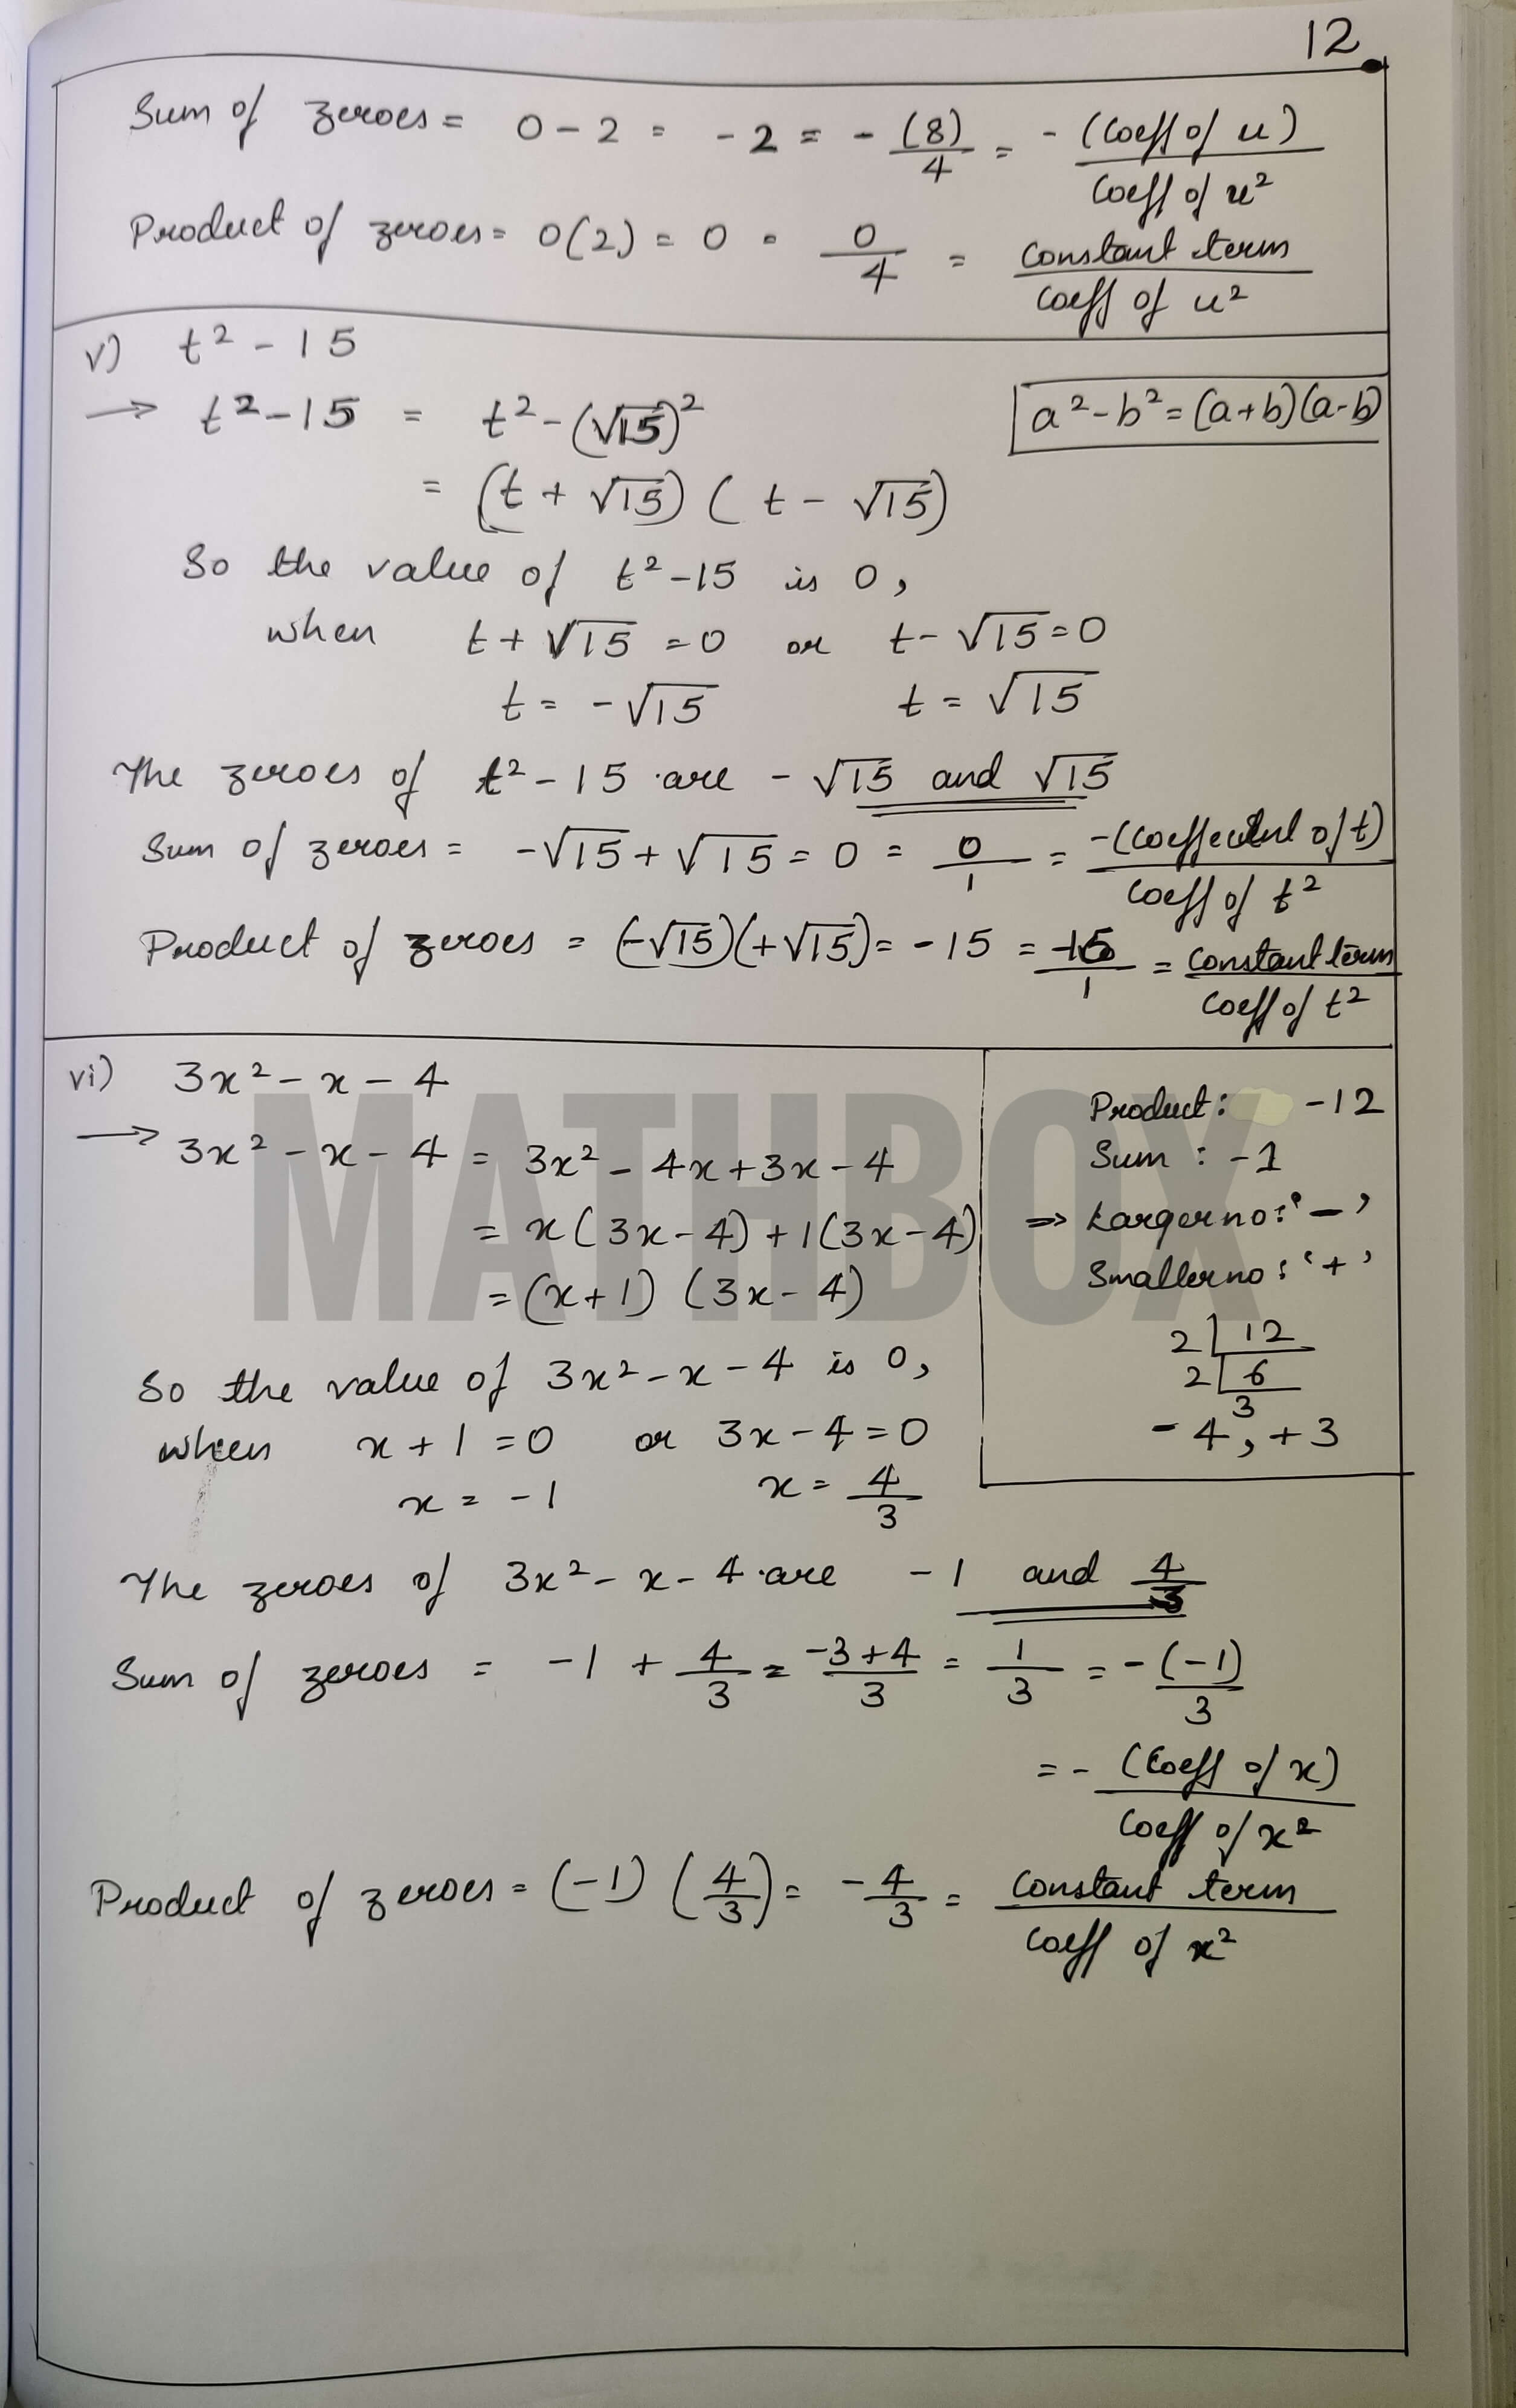 12
Sum of zeroes = 0 - 2 = -2 = -(8)/4 = -(Coeff of u)/Coeff of u²
Product of zeroes = 0(2) = 0 = 0/4 = Constant term/Coeff of u²
v) t² - 15
→ t² - 15 = t² - (√15)²
a² - b² = (a+b)(a-b)
= (t + √15) (t - √15)
So the value of t² - 15 is 0,
when t + √15 = 0 or t - √15 = 0
t = -√15 t = √15
The zeroes of t² - 15 are -√15 and √15
Sum of zeroes = -√15 + √15 = 0 = 0/1 = -(coeffecient of t)/Coeff of t²
Product of zeroes = (-√15)(+√15) = -15 = -15/1 = Constant term/Coeff of t²
vi) 3x² - x - 4
→ 3x² - x - 4 = 3x² - 4x + 3x - 4
= x(3x - 4) + 1(3x - 4)
= (x+1) (3x - 4)
Product: -12
Sum : -1
⇒ Larger no: '-'
Smaller no: '+'
2 | 12
2 | 6
3
-4, +3
So the value of 3x² - x - 4 is 0,
when x + 1 = 0 or 3x - 4 = 0
x = -1 x = 4/3
The zeroes of 3x² - x - 4 are -1 and 4/3
Sum of zeroes = -1 + 4/3 = -3+4/3 = 1/3 = -(-1)/3
= -(Coeff of x)/Coeff of x²
Product of zeroes = (-1) (4/3) = -4/3 = Constant term/Coeff of x²
MATHBOX